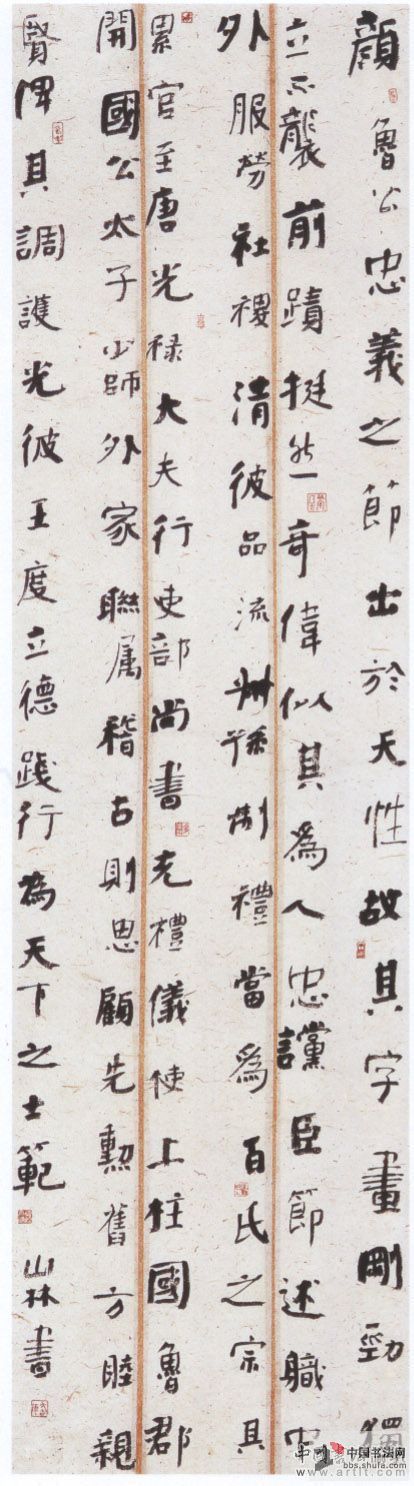 顏魯公忠義之節出於天性故其字畫剛勁獨
立不襲前蹟挺然奇偉似其爲人忠讜臣節述職中
外服勞社稷清彼品流叔孫制禮當爲百氏之宗其
累官至唐光禄大夫行吏部尚書充禮儀使上柱國魯郡
開國公太子少師外家聯属稽古則思顧先勲舊方睦親
賢俾其調護光彼王度立德踐行為天下之士範
山林書
中国书法网
bbs.shufa.com